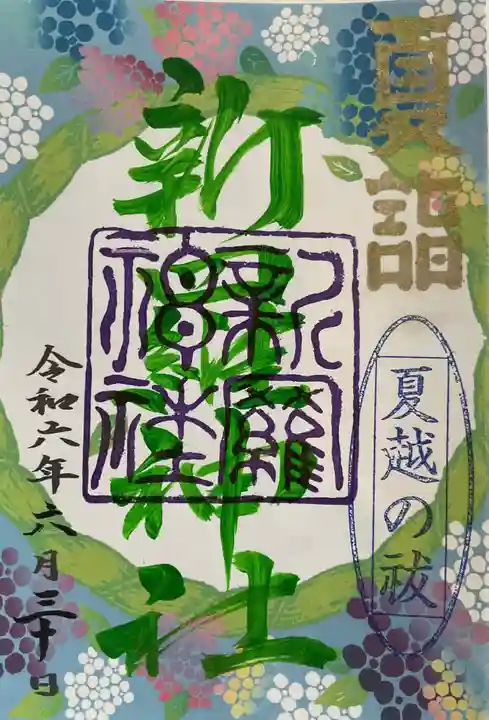 夏詣
夏越の祓
新羅神社
新羅
神社
令和六年六月三十日